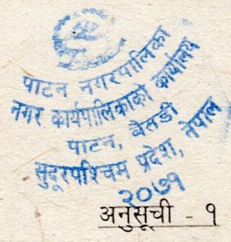 पाटन नगरपालिका
नगर कार्यपालिकाको कार्यालय
पाटन, बैतडी
सुदूरपश्चिम प्रदेश, नेपाल
२०७१
अनुसूची - १